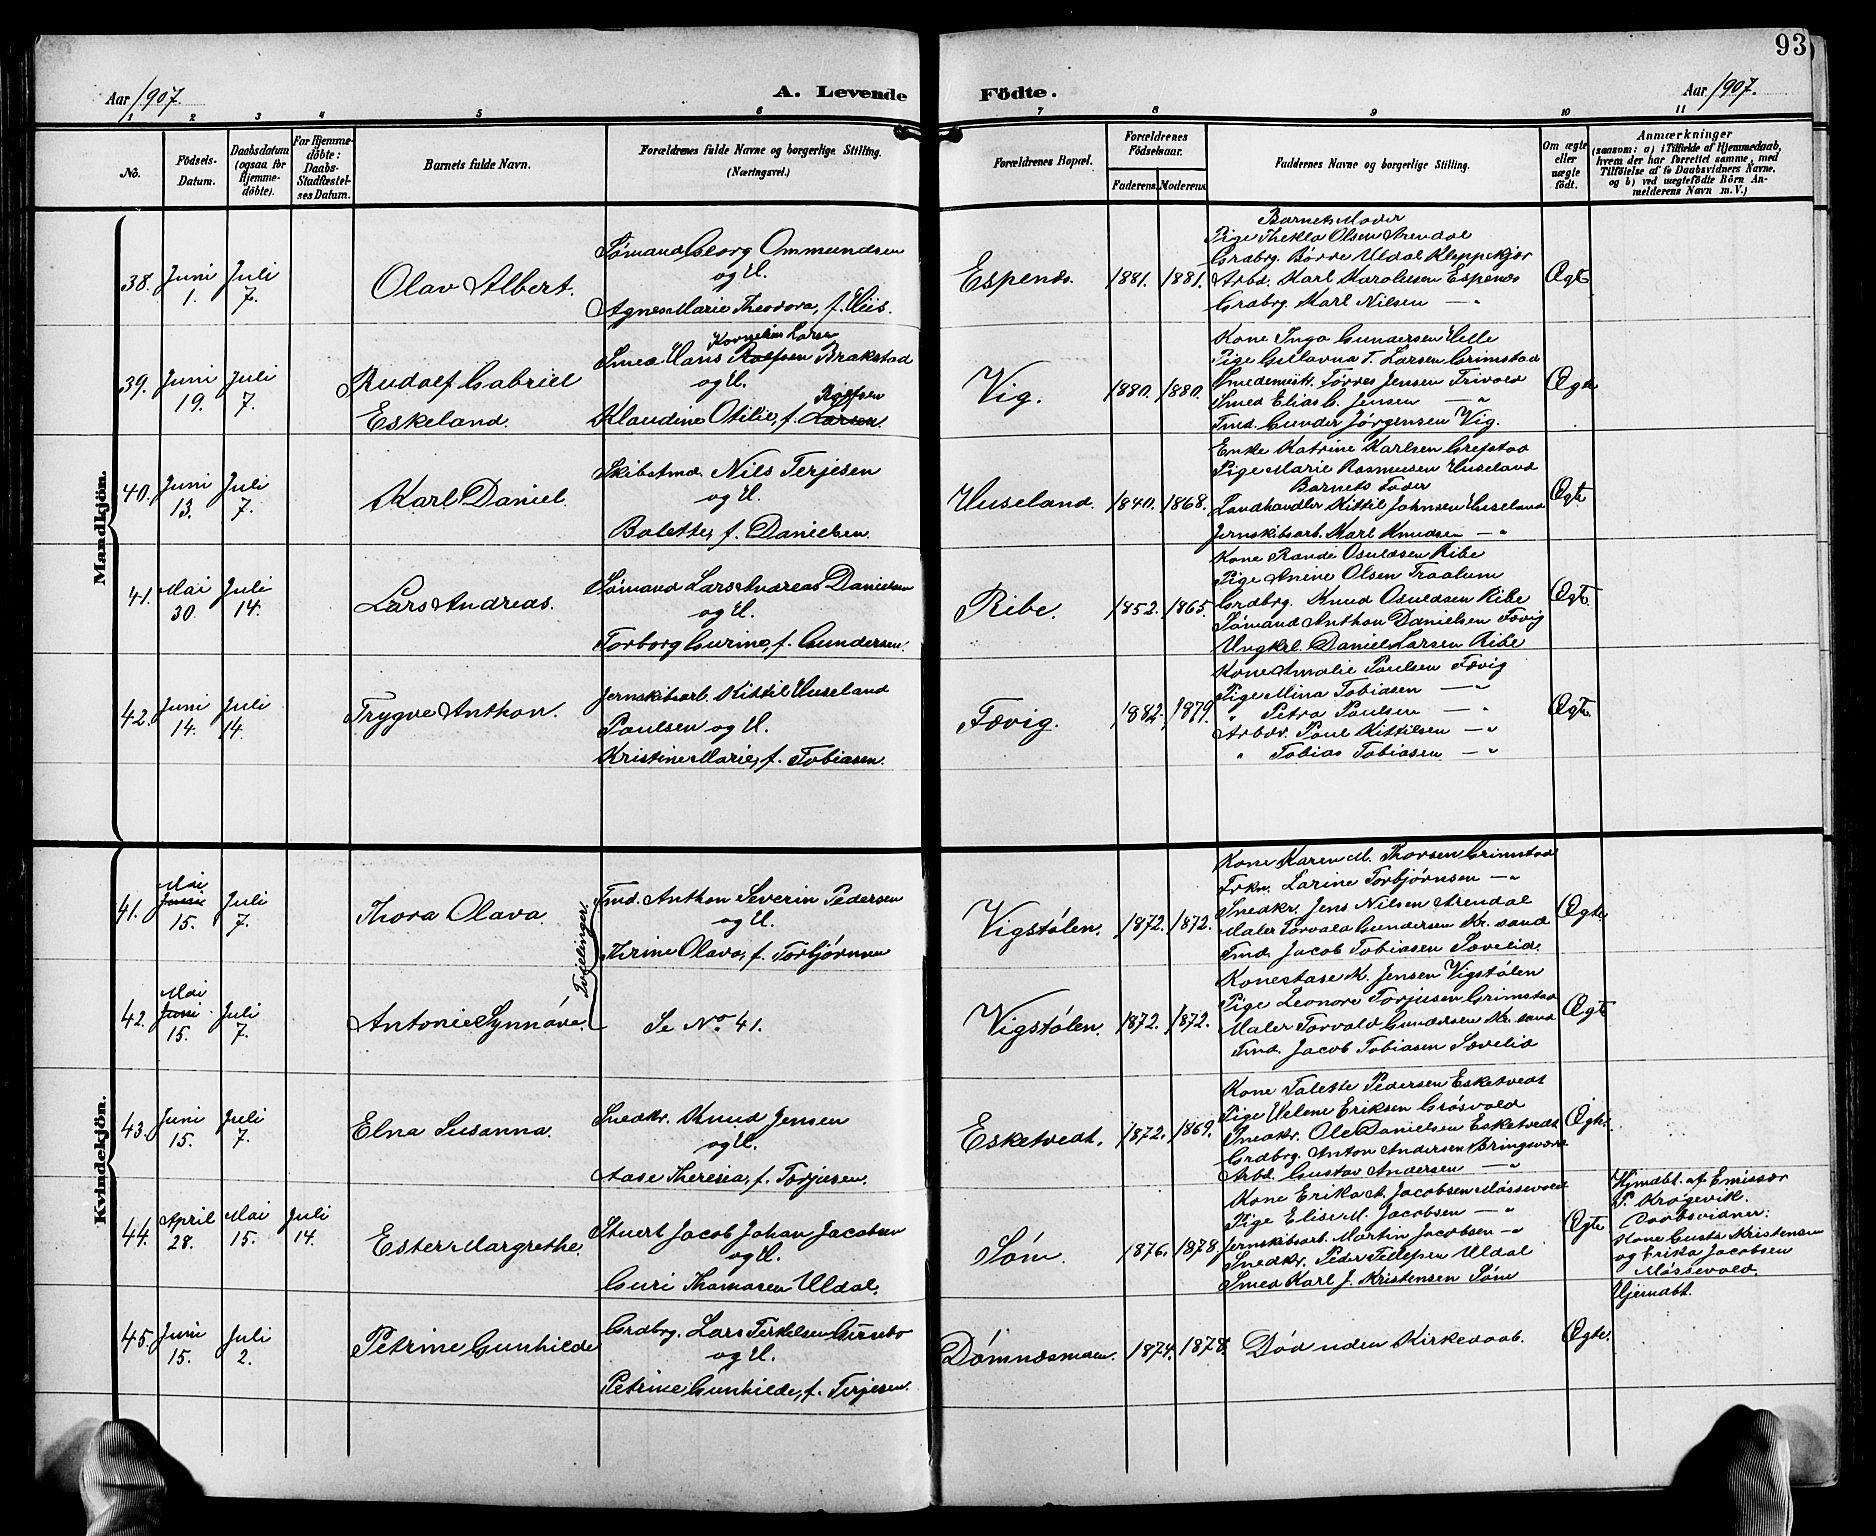 93
Aar 1907.
A. Levende Födte.
Aar 1907.
1 2 3 4 5 6 7 8 9 10 11
No.
Födsels-
Datum.
Daabsdatum
(ogsaa for
Hjemme-
döbte).
For Hjemme-
döbte:
Daabs-
Stadfæstel-
ses Datum.
Barnets fulde Navn.
Forældrenes fulde Navne og borgerlige Stilling.
(Næringsvei.)
Forældrenes Bopæl.
Forældrenes
Födselsaar.
Faderens.
Moderens.
Faddernes Navne og borgerlige Stilling.
Om ægte
eller
uægte
födt.
Anmærkninger
(saasom: a) i Tilfælde af Hjemmedaab,
hvem der har forrettet samme, med
Tilföielse af to Daabsvidners Navne,
og b) ved uægtefödte Börn An-
melderens Navn m. V.)
Mandkjön.
38. Juni 1. Juli 7.
Olav Albert.
Sømand Georg Ommundsen
og H.
Agnes Marie Theodora, f. Hiis.
Espenes. 1881. 1881.
Barnets Moder
Pige Thekla Olsen Arendal
Grdbrg. Børre Uldal Kleppekjær
Arbd. Karl Karolusen Espenes
Grdbrg. Karl Nilsen — "
Ægte
39. Juni 19. Juli 7.
Rudolf Gabriel
Eskeland.
Kornelius Larsen
Smed Hans Roelfsen Brakstad
og H.
Roelfsen
Klaudine Otilie, f. Larsen.
Vig. 1880. 1880.
Kone Inga Gundersen Helle
Pige Gullavna T. Larsen Grimstad
Smedemstr. Torres Jensen Trivold
Smed Elias G. Jensen — "
Tmd. Gunder Jørgensen Vig.
Ægte
40. Juni 13. Juli 7.
Karl Daniel.
Skibstmd. Nils Terjesen
og H.
Bolette, f. Danielsen.
Huseland. 1840. 1868.
Enke Katrine Karlsen Grefstad
Pige Marie Rasmussen Huseland
Barnets Fader
Landhandler Kittil Johnsen Huseland
Jernskibsarb. Karl Knudsen — "
Ægte
41. Mai 30. Juli 14.
Lars Andreas.
Sømand Lars Andreas Danielsen
og H.
Torborg Gurine, f. Gundersen.
Ribe. 1852. 1865.
Kone Randi Osuldsen Ribe
Pige Anine Olsen Traalum
Grdbrg. Knud Osuldsen Ribe
Sømand Anthon Danielsen Fævig
Ungkrl. Daniel Larsen Ribe
Ægte
42. Juni 14. Juli 14.
Trygve Anthon.
Jernskibsarb. Kittil Huseland
Paulsen og H.
Kristine Marie, f. Tobiasen.
Fævig. 1882. 1879.
Kone Amalie Paulsen Fævig
Pige Mina Tobiasen — "
" Petra Paulsen — "
Arbdr. Paul Kittilsen — "
" Tobias Tobiasen — "
Ægte
Kvindekjön.
41. Mai Juni 15. Juli 7.
Thora Olava.
Tvillinger.
Tmd. Anthon Severin Pedersen
og H.
Thrine Olava, f. Torbjørnsen
Vigstølen. 1872. 1872.
Kone Karen M. Thorsen Grimstad
Frkn. Larine Torbjørnsen — "
Snedkr. Jens Nilsen Arendal
Maler Torvald Gundersen Kr.sand
Tmd. Jacob Tobiasen Sævelid.
Ægte
42. Mai Juni 15. Juli 7.
Antonie Synnøve.
Se No. 41.
Vigstølen. 1872. 1872.
Kone Aase K. Jensen Vigstølen
Pige Leonore Torjusen Grimstad
Maler Torvald Gundersen Kr.sand
Tmd. Jacob Tobiasen Sævelid
Ægte
43. Juni 15. Juli 7.
Elna Susanna.
Snedkr. Knud Jensen
og H.
Aase Theresia, f. Torjusen.
Esketvedt. 1872. 1869.
Kone Talette Pedersen Esketvedt
Pige Helene Eriksen Grøsvold
Snedkr. Ole Danielsen Esketvedt
Grdbrg. Anton Andersen Bringsværd
Arbd. Gustav Andersen — "
Ægte.
44. April 28. Mai 15. Juli 14.
Ester Margrethe.
Stuert Jacob Johan Jacobsen
og H.
Guri Thomasen Uldal.
Søm. 1876. 1878.
Kone Erika A. Jacobsen Møssevold
Pige Elise M. Jacobsen — "
Jernskibsarb. Martin Jacobsen — "
Snedkr. Peder Tellefsen Uldal
Smed Karl J. Kristensen Søm
Ægte
Hjmdbt. af Emissær
P. Krogevik.
Daabsvidner:
Kone Gusta Kristensen
og Erika Jacobsen
Møssevold.
45. Juni 15. Juli 2.
Petrine Gunhilde
Grdbrg. Lars Terkelsen Gursebo
og H.
Petrine Gunhilde, f. Terjesen.
Dømnesmoen. 1874. 1878.
Død uden Kirkedaab.
Ægte.
Hjemdbt.